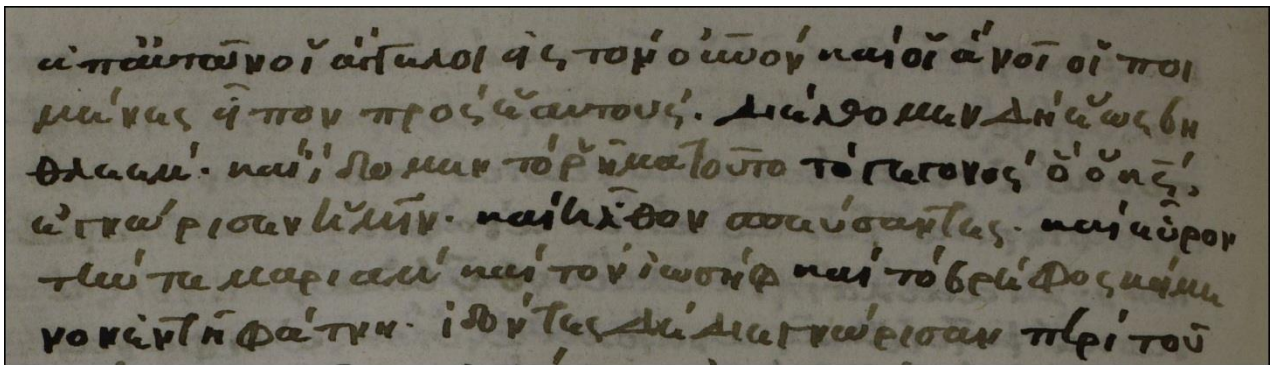 ἀπ᾽ αὐτῶν οἱ ἄγγελοι εἰς τὸν οὐνον καὶ οἱ ἀνοι οἱ ποι
μένες εἶπον πρὸς ἑαυτούς. διέλθομεν δὴ ἕως βη
θλεέμ· καὶ ἴδομεν τὸ ῥῆμα τοῦτο τὸ γεγονός ὃ ὁ κς
ἐγνώρισεν ἡμῖν· καὶ ἦλθον σπεύσαντες· καὶ εὗρον
τήν τε μαριὰμ καὶ τὸν ἰωσὴφ καὶ τὸ βρέφος κείμε
νον ἐν τῇ φάτνῃ· ἰδόντες δὲ διεγνώρισαν περὶ τοῦ